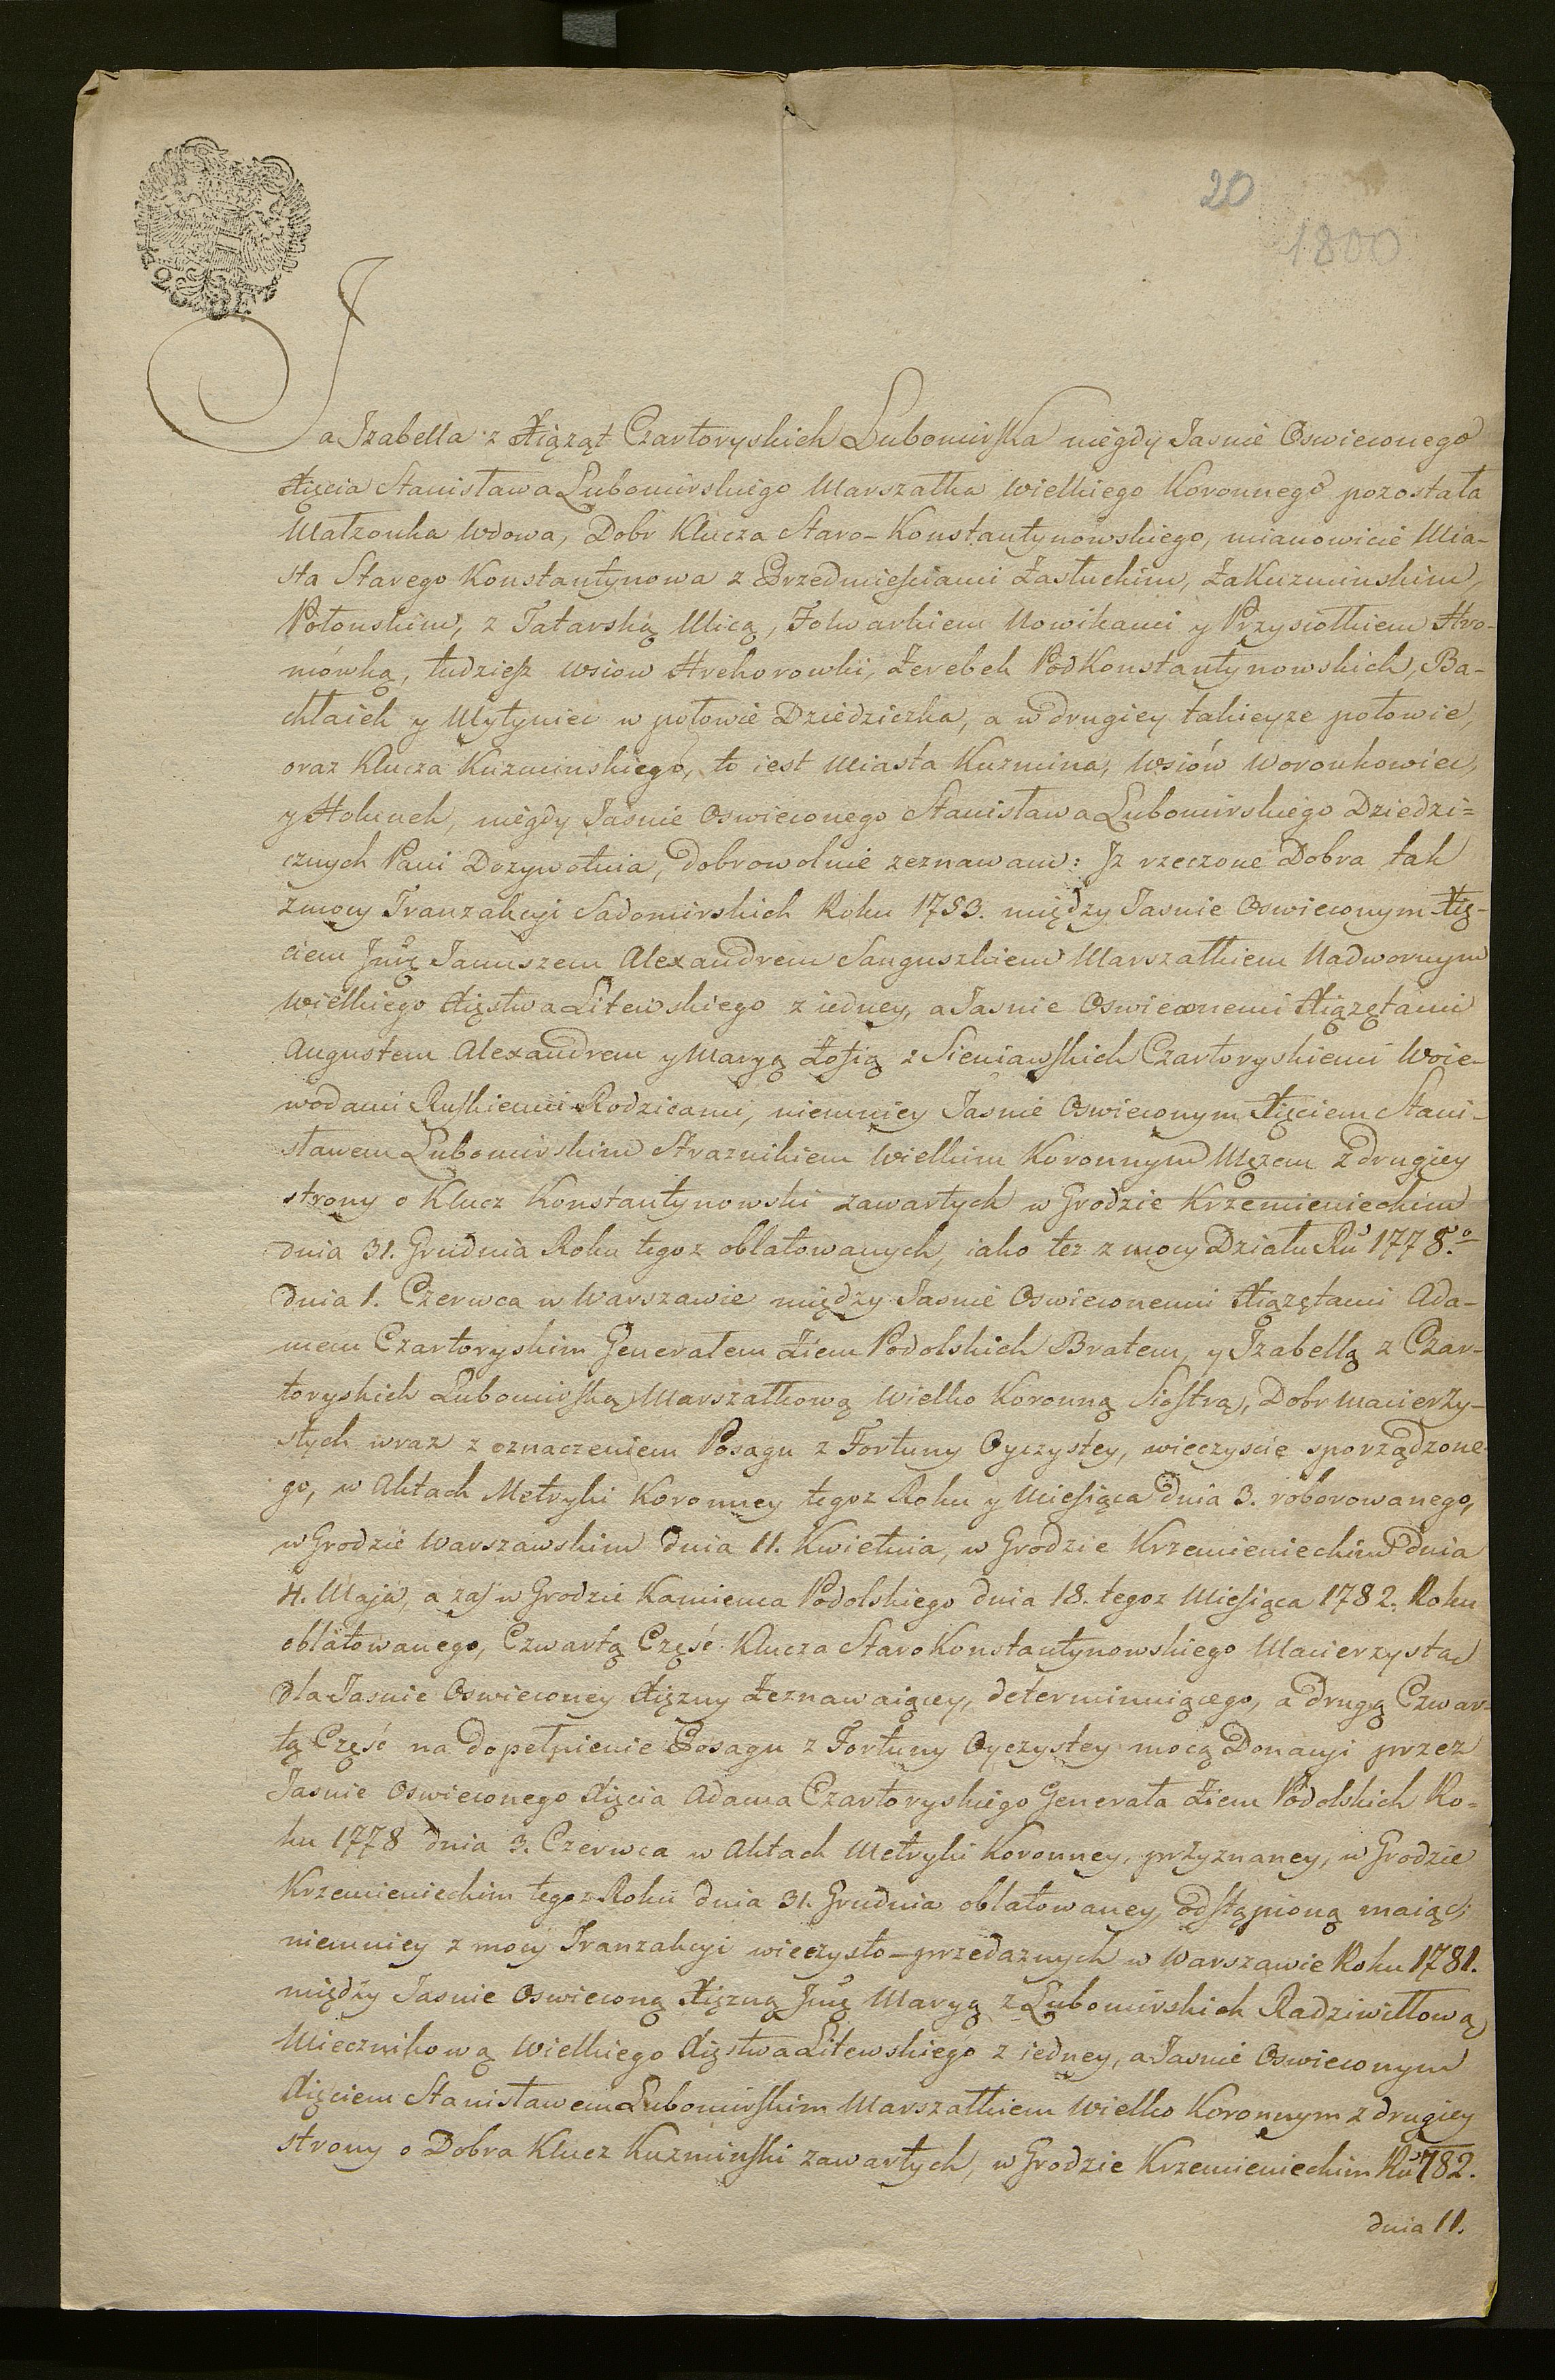 20
1800
Ja Izabella z Xiąząt Czartoryskich Lubomirska niegdy Jasnie Oswieconego
Xięcia Stanisława Lubomirskiego Marszałka Wielkiego Koronnego pozostała
Małzonka Wdowa, Dobr Klucza Staro-Konstantynowskiego, mianowicie Mia-
sta Starego Konstantynowa z Przedmieściami Zasłuckim, Zakuzminskim,
Połonskim, z Tatarską Ulicą, Folwarkiem Nowikami y Przysiołkiem Hro-
mówką, tudziesz wsiow Hrehorowki, Zerebek Podkonstantynowskich, Ba-
chłaick y Wytyniec w połowie Dziedziczka, a w drugiey takieyze połowie,
oraz Klucza Kuzminskiego, to iest Miasta Kuzmina, Wsiów Woronkowiec,
y Hołunek, niegdy Jasnie Oswieconego Stanisława Lubomirskiego Dziedzi=
cznych Pani Dozywotnia, dobrowolnie zeznawam: Iz rzeczone Dobra tak
z mocy Tranzakcyi Sadomirskich Roku 1753. między Jasnie Oswieconym Xię-
ciem Jmć Januszem Alexandrem Sanguszkiem Marszałkiem Nadwornym
Wielkiego Xięstwa Litewskiego z iedney, a Jasnie Oswieconemi Xiązętami
Augustem Alexandrem y Maryą Zofią z Sieniawskich Czartoryskiemi Woie-
wodami Ruskiemi Rodzicami, niemniey Jasnie Oswieconym Xięciem Stani-
sławem Lubomirskim Straznikiem Wielkim Koronnym Męzem z drugiey
strony o Klucz Konstantynowski zawartych w Grodzie Krzemienieckim
dnia 31. Grudnia Roku tegoz oblatowanych, iako tez z mocy Działu Ru 1778.o
dnia 1. Czerwca w Warszawie między Jasnie Oswieconemi Xiązętami Ada-
mem Czartoryskim Generałem Ziem Podolskich Bratem, y Izabellą z Czar-
toryskich Lubomirską Marszałkową Wielko Koronną Siostrą, Dobr Macierzy-
stych wraz z oznaczeniem Posagu z Fortuny Oyczystey, wieczyscie sporządzone-
go, w Aktach Metryki Koronney tegoz Roku y Miesiąca dnia 3. roborowanego,
w Grodzie Warszawskim dnia 11. Kwietnia, w Grodzie Krzemienieckim dnia
4. Maja, a zas w Grodzie Kamienca Podolskiego dnia 18. tegoz Miesiąca 1782. Roku
oblatowanego, Czwartą Część Klucza Staro Konstantynowskiego Macierzystą
dla Jasnie Oswieconey Xięzny Zeznawaiącey, determinuiącego, a drugą Czwar-
tą Część na dopełnienie Posagu z Fortuny Oyczystey mocą Donacyi przez
Jasnie Oswieconego Xięcia Adama Czartoryskiego Generała Ziem Podolskich Ro-
ku 1778 dnia 3. Czerwca w Aktach Metryki Koronney, przyznaney, w Grodzie
Krzemienieckim tegoz Roku dnia 31. Grudnia oblatowaney, odstąpioną maiąc;
niemniey z mocy Tranzakcyi wieczysto-przedaznych w Warszawie Roku 1781.
między Jasnie Oswieconą Xięzną Jmć Maryą z Lubomirskich Radziwiłłową
Miecznikową Wielkiego Xięstwa Litewskiego z iedney, a Jasnie Oswieconym
Xięciem Stanisławem Lubomirskim Marszałkiem Wielko Koronnym z drugiey
strony o Dobra Klucz Kuzminski zawartych, w Grodzie Krzemienieckim Ru 1782.
dnia 11.